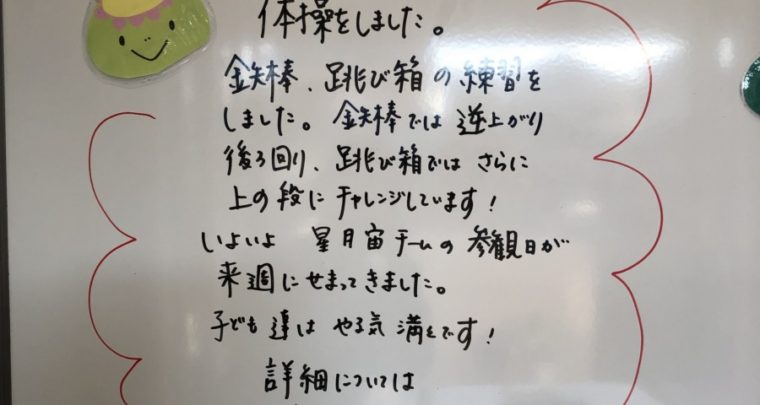 体操をしました。
鉄棒、跳び箱の練習を
しました。鉄棒では逆上がり
後ろ回り、跳び箱ではさらに
上の段にチャレンジしています!
いよいよ 星月宙チームの参観日が
来週にせまってきました。
子ども達はやる気満々です!
詳細については